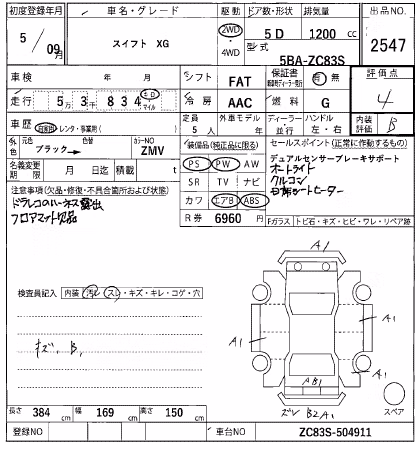 初度登録年月 車名・グレード 駆動 ドア数・形状 排気量 出品NO.
5/09月 スイフト XG 2WD・4WD 5D 1200cc 2547
型式 5BA-ZC83S
車検 年 月 シフト FAT 保証書 有・無 評価点
走行 5万3千834 キロ マイル 冷房 AAC 燃料 G 4
車歴 自家用・レンタ・事業用( ) 定員 5人 外車モデル 年 ディーラー・並行 ハンドル 左・右 内装評価 B
外色 元色 ブラック→ 色 カラーNO ZMV 装備品(純正品に限る) セールスポイント(正常に作動するもの)
名義変更期限 月 日迄 積載 t PS PW AW デュアルセンサーブレーキサポート
注意事項(欠品・修復・不具合箇所および状態) SR TV ナビ オートライト
ドラレコのハーネス露出 カワ エアB ABS クルコン
フロアマット欠品 R券 6960円 シートヒーター
Fガラス トビ石・キズ・ヒビ・ワレ・リペア跡
検査員記入 内装 汚れ・スレ・キズ・キレ・コゲ・穴
A1
キズ、B、
A1
A1
A1
AB1
B2A1
スペア
長さ 384cm 幅 169cm 高さ 150cm
登録NO 車台NO ZC83S-504911